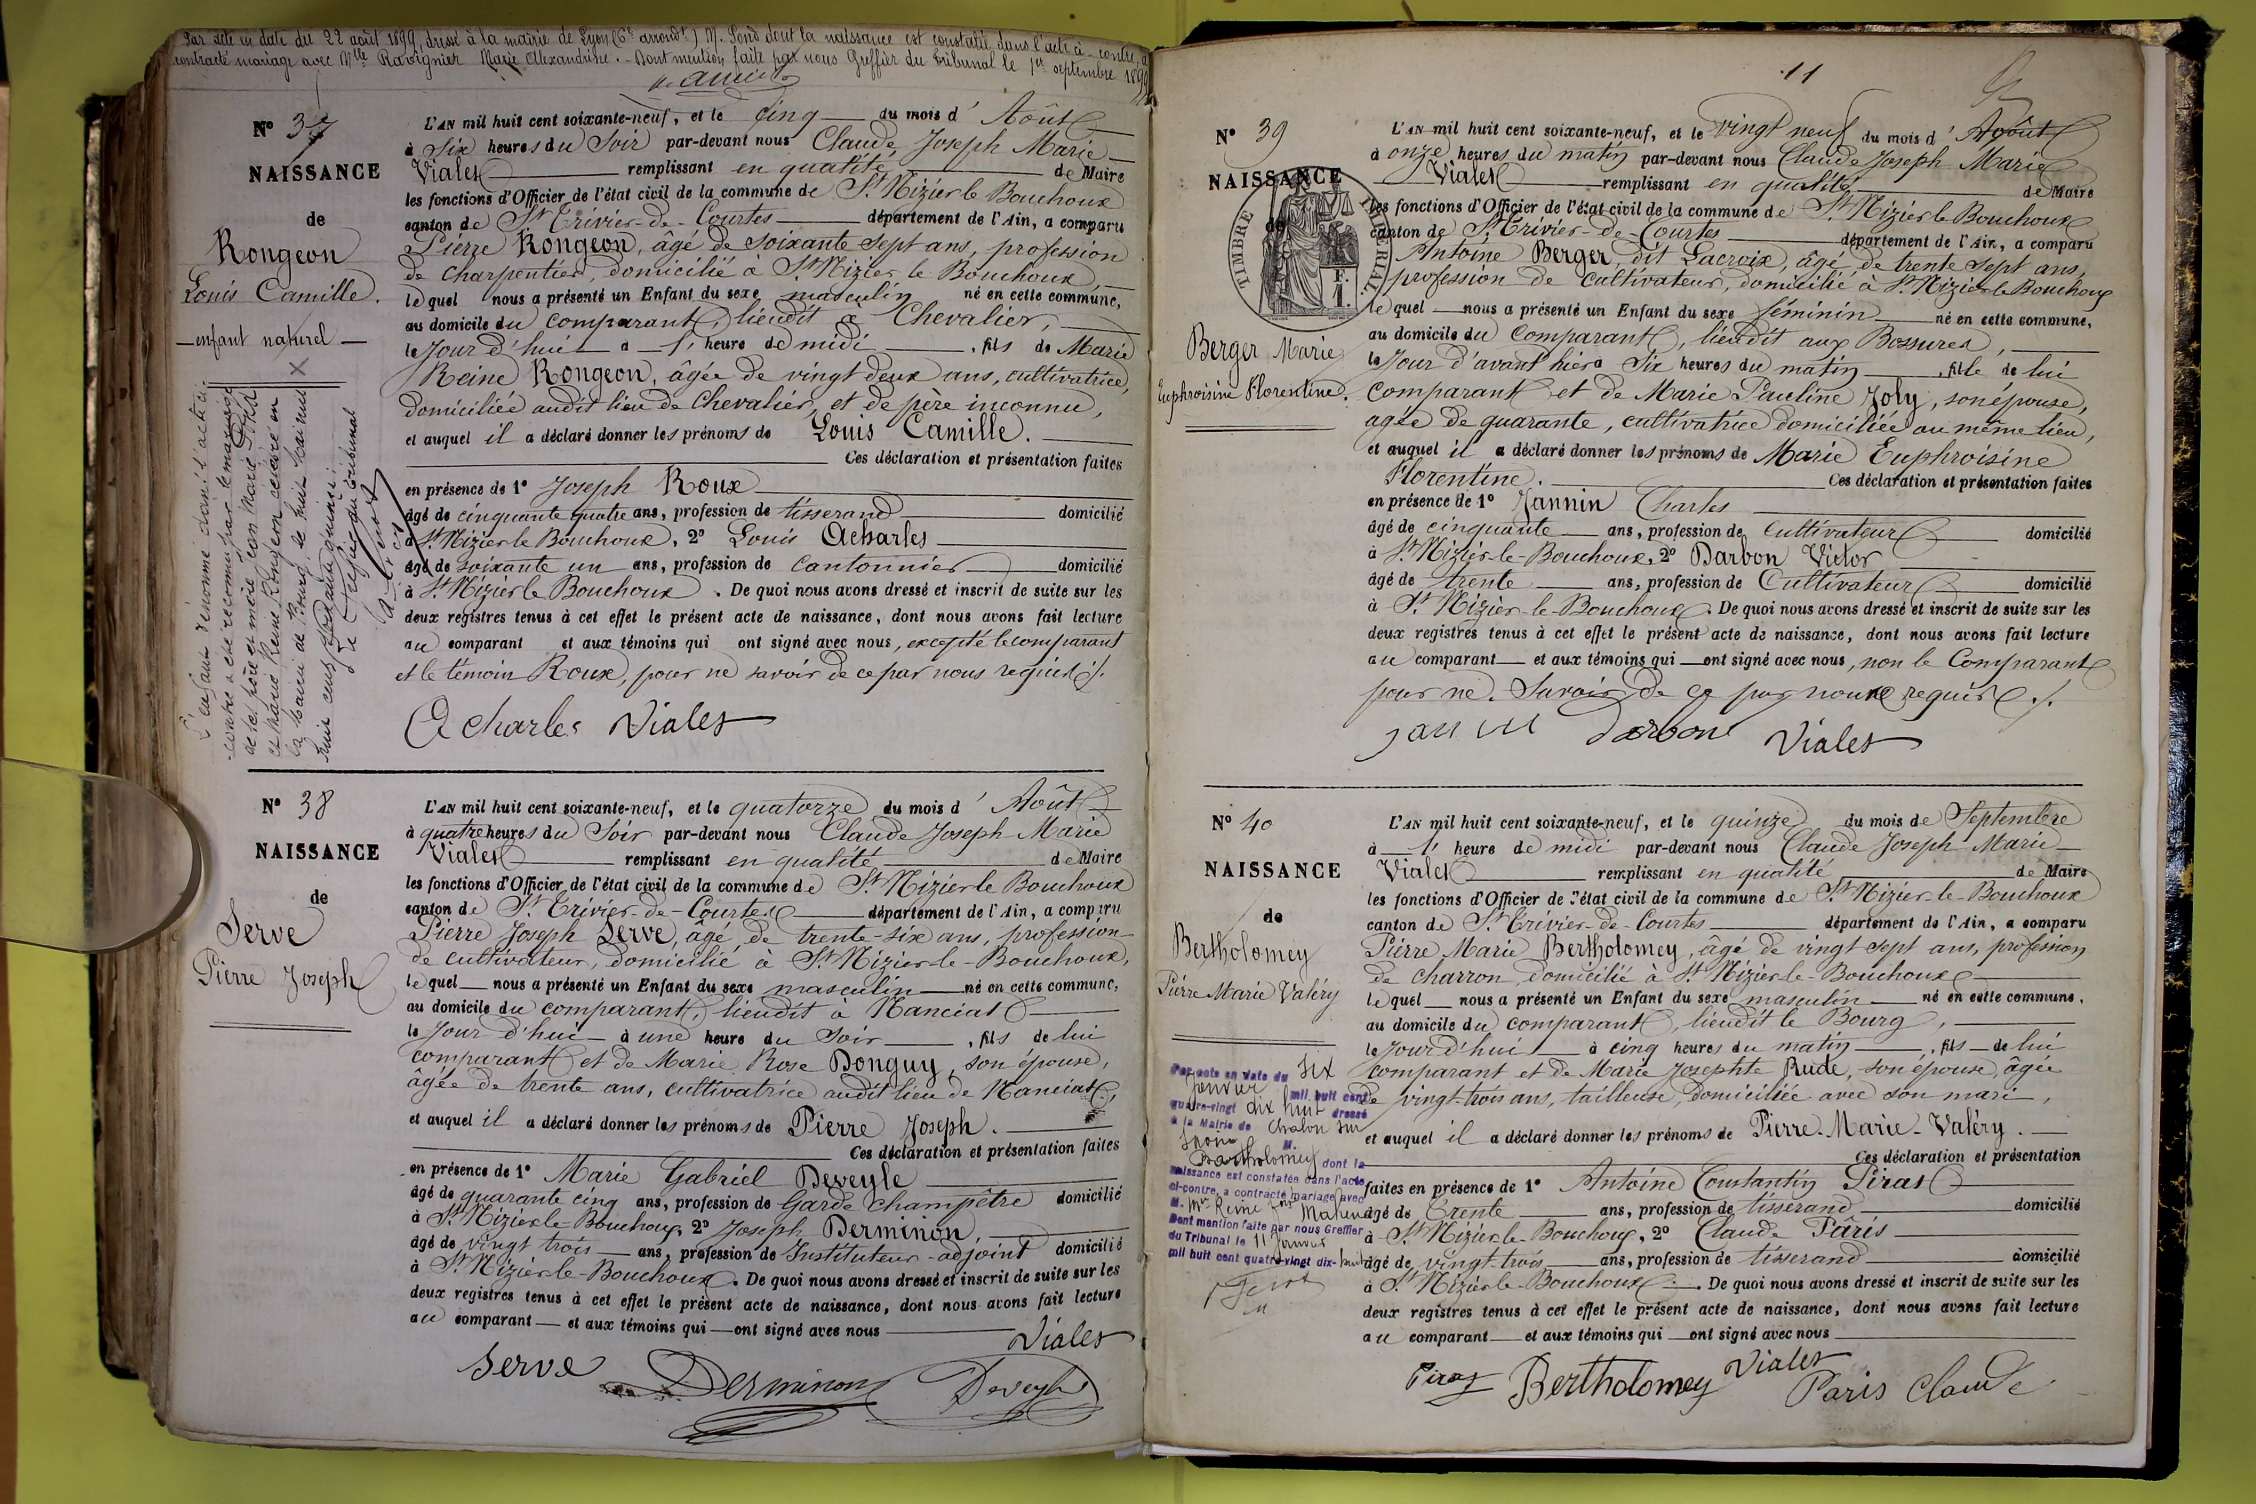 Par acte en date du 22 août 1899, dressé à la mairie de Lyon (6e arrondt.) M. Fond dont la naissance est constatée dans l'acte ci-contre, a
contracté mariage avec Mlle Ravignier Marie Alexandrine. - Dont mention faite par nous Greffier du Tribunal le 1er septembre 1899
No 37
NAISSANCE
de
Rongeon
Louis Camille.
enfant naturel
L'enfant dénommé dans l'acte ci-
contre a été reconnu par le mariage
de ses père et mère
et Marie Reine Rongeon célébré en
la mairie de Bourg le huit
L'AN mil huit cent soixante-neuf, et le cinq du mois d'Août
à six heures du Soir par-devant nous Claude Joseph Marie
Viales remplissant en qualité de Maire
les fonctions d'Officier de l'état civil de la commune de St Nizier le Bouchoux
canton de St Trivier-de-Courtes département de l'Ain, a comparu
Pierre Rongeon, âgé de soixante sept ans, profession
de charpentier, domicilié à St Nizier le Bouchoux,
lequel nous a présenté un Enfant du sexe masculin né en cette commune,
au domicile du comparant, lieudit à Chevalier,
le Jour d'hui à l' heure de midi, fils de Marie
Reine Rongeon, âgée de vingt deux ans, cultivatrice,
domiciliée audit lieu de Chevalier, et de père inconnu,
et auquel il a déclaré donner les prénoms de Louis Camille.
Ces déclaration et présentation faites
en présence de 1° Joseph Roux
âgé de cinquante quatre ans, profession de tisserand domicilié
à St Nizier le Bouchoux, 2° Louis Acharles
âgé de soixante un ans, profession de cantonnier domicilié
à St Nizier le Bouchoux. De quoi nous avons dressé et inscrit de suite sur les
deux registres tenus à cet effet le présent acte de naissance, dont nous avons fait lecture
au comparant et aux témoins qui ont signé avec nous, excepté le comparant
et le témoin Roux, pour ne savoir de ce par nous requis ./.
Acharles Viales
No 38
NAISSANCE
de
Serve
Pierre Joseph
L'AN mil huit cent soixante-neuf, et le quatorze du mois d'Août
à quatre heures du Soir par-devant nous Claude Joseph Marie
Viales remplissant en qualité de Maire
les fonctions d'Officier de l'état civil de la commune de St Nizier le Bouchoux
canton de St Trivier-de-Courtes département de l'Ain, a comparu
Pierre Joseph Serve, âgé de trente-six ans, profession
de cultivateur, domicilié à St Nizier-le-Bouchoux,
lequel nous a présenté un Enfant du sexe masculin né en cette commune,
au domicile du comparant, lieudit à Nanciat
le Jour d'hui à une heure du Soir, fils de lui
comparant et de Marie Rose Donguy, son épouse,
âgée de trente ans, cultivatrice audit lieu de Nanciat,
et auquel il a déclaré donner les prénoms de Pierre Joseph.
Ces déclaration et présentation faites
en présence de 1° Marie Gabriel Deveyle
âgé de quarante cinq ans, profession de Garde champêtre domicilié
à St Nizier-le-Bouchoux, 2° Joseph Derminon,
âgé de vingt trois ans, profession de Instituteur-adjoint domicilié
à St Nizier-le-Bouchoux. De quoi nous avons dressé et inscrit de suite sur les
deux registres tenus à cet effet le présent acte de naissance, dont nous avons fait lecture
au comparant et aux témoins qui ont signé avec nous
Viales
Serve Derminon Deveyle
11
No 39
NAISSANCE
de
TIMBRE IMPERIAL
F.
1.
Berger Marie
Euphroisine Florentine.
L'AN mil huit cent soixante-neuf, et le vingt neuf du mois d'Août
à onze heures du matin par-devant nous Claude Joseph Marie
Viales remplissant en qualité de Maire
les fonctions d'Officier de l'état civil de la commune de St Nizier le Bouchoux
canton de St Trivier-de-Courtes département de l'Ain, a comparu
Antoine Berger, dit Lacroix, âgé de trente sept ans,
profession de cultivateur, domicilié à St Nizier le Bouchoux
lequel nous a présenté un Enfant du sexe féminin né en cette commune,
au domicile du comparant, lieudit aux Bossures,
le Jour d'avant hier à six heures du matin, fille de lui
comparant et de Marie Pauline Joly, son épouse,
agée de quarante, cultivatrice domiciliée au même lieu,
et auquel il a déclaré donner les prénoms de Marie Euphroisine
Florentine. Ces déclaration et présentation faites
en présence de 1° Jannin Charles
âgé de cinquante ans, profession de cultivateur domicilié
à St Nizier-le-Bouchoux, 2° Darbon Victor
âgé de trente ans, profession de Cultivateur domicilié
à St Nizier-le-Bouchoux. De quoi nous avons dressé et inscrit de suite sur les
deux registres tenus à cet effet le présent acte de naissance, dont nous avons fait lecture
au comparant et aux témoins qui ont signé avec nous, non le Comparant
pour ne Savoir de ce par nous requis ./.
Jannin Darbon Viales
No 40
NAISSANCE
de
Bertholomey
Pierre Marie Valéry
Par acte en date du six
Janvier mil huit cent
quatre-vingt dix huit dressé
à la Mairie de Chalon sur
Saone M.
Bartholomey dont la
naissance est constatée dans l'acte
ci-contre, a contracté mariage avec
M. Reine
Dont mention faite par nous Greffier
du Tribunal le 11 Janvier
mil huit cent quatre-vingt dix-huit
L'AN mil huit cent soixante-neuf, et le quinze du mois de Septembre
à l' heure de midi par-devant nous Claude Joseph Marie
Viales remplissant en qualité de Maire
les fonctions d'Officier de l'état civil de la commune de St Nizier-le-Bouchoux
canton de St Trivier-de-Courtes département de l'Ain, a comparu
Pierre Marie Bertholomey, âgé de vingt sept ans, profession
de charron, domicilié à St Nizier-le-Bouchoux
lequel nous a présenté un Enfant du sexe masculin né en cette commune,
au domicile du comparant, lieudit le Bourg,
le Jour d'hui à cinq heures du matin, fils de lui
comparant et de Marie Josephte Rude, son épouse, âgée
de vingt-trois ans, tailleuse, domiciliée avec son mari,
et auquel il a déclaré donner les prénoms de Pierre-Marie-Valéry.
Ces déclaration et présentation
faites en présence de 1° Antoine Constantin Piras
âgé de trente ans, profession de tisserand domicilié
à St Nizier-le-Bouchoux, 2° Claude Pâris
âgé de vingt-trois ans, profession de tisserand domicilié
à St Nizier-le-Bouchoux. De quoi nous avons dressé et inscrit de suite sur les
deux registres tenus à cet effet le présent acte de naissance, dont nous avons fait lecture
au comparant et aux témoins qui ont signé avec nous
Piras Bertholomey Viales Paris Claude